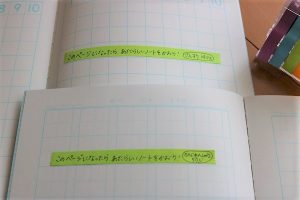 8 9 10
このページになったら あたらしいノートをかおう!
このページになったら あたらしいノートをかおう!